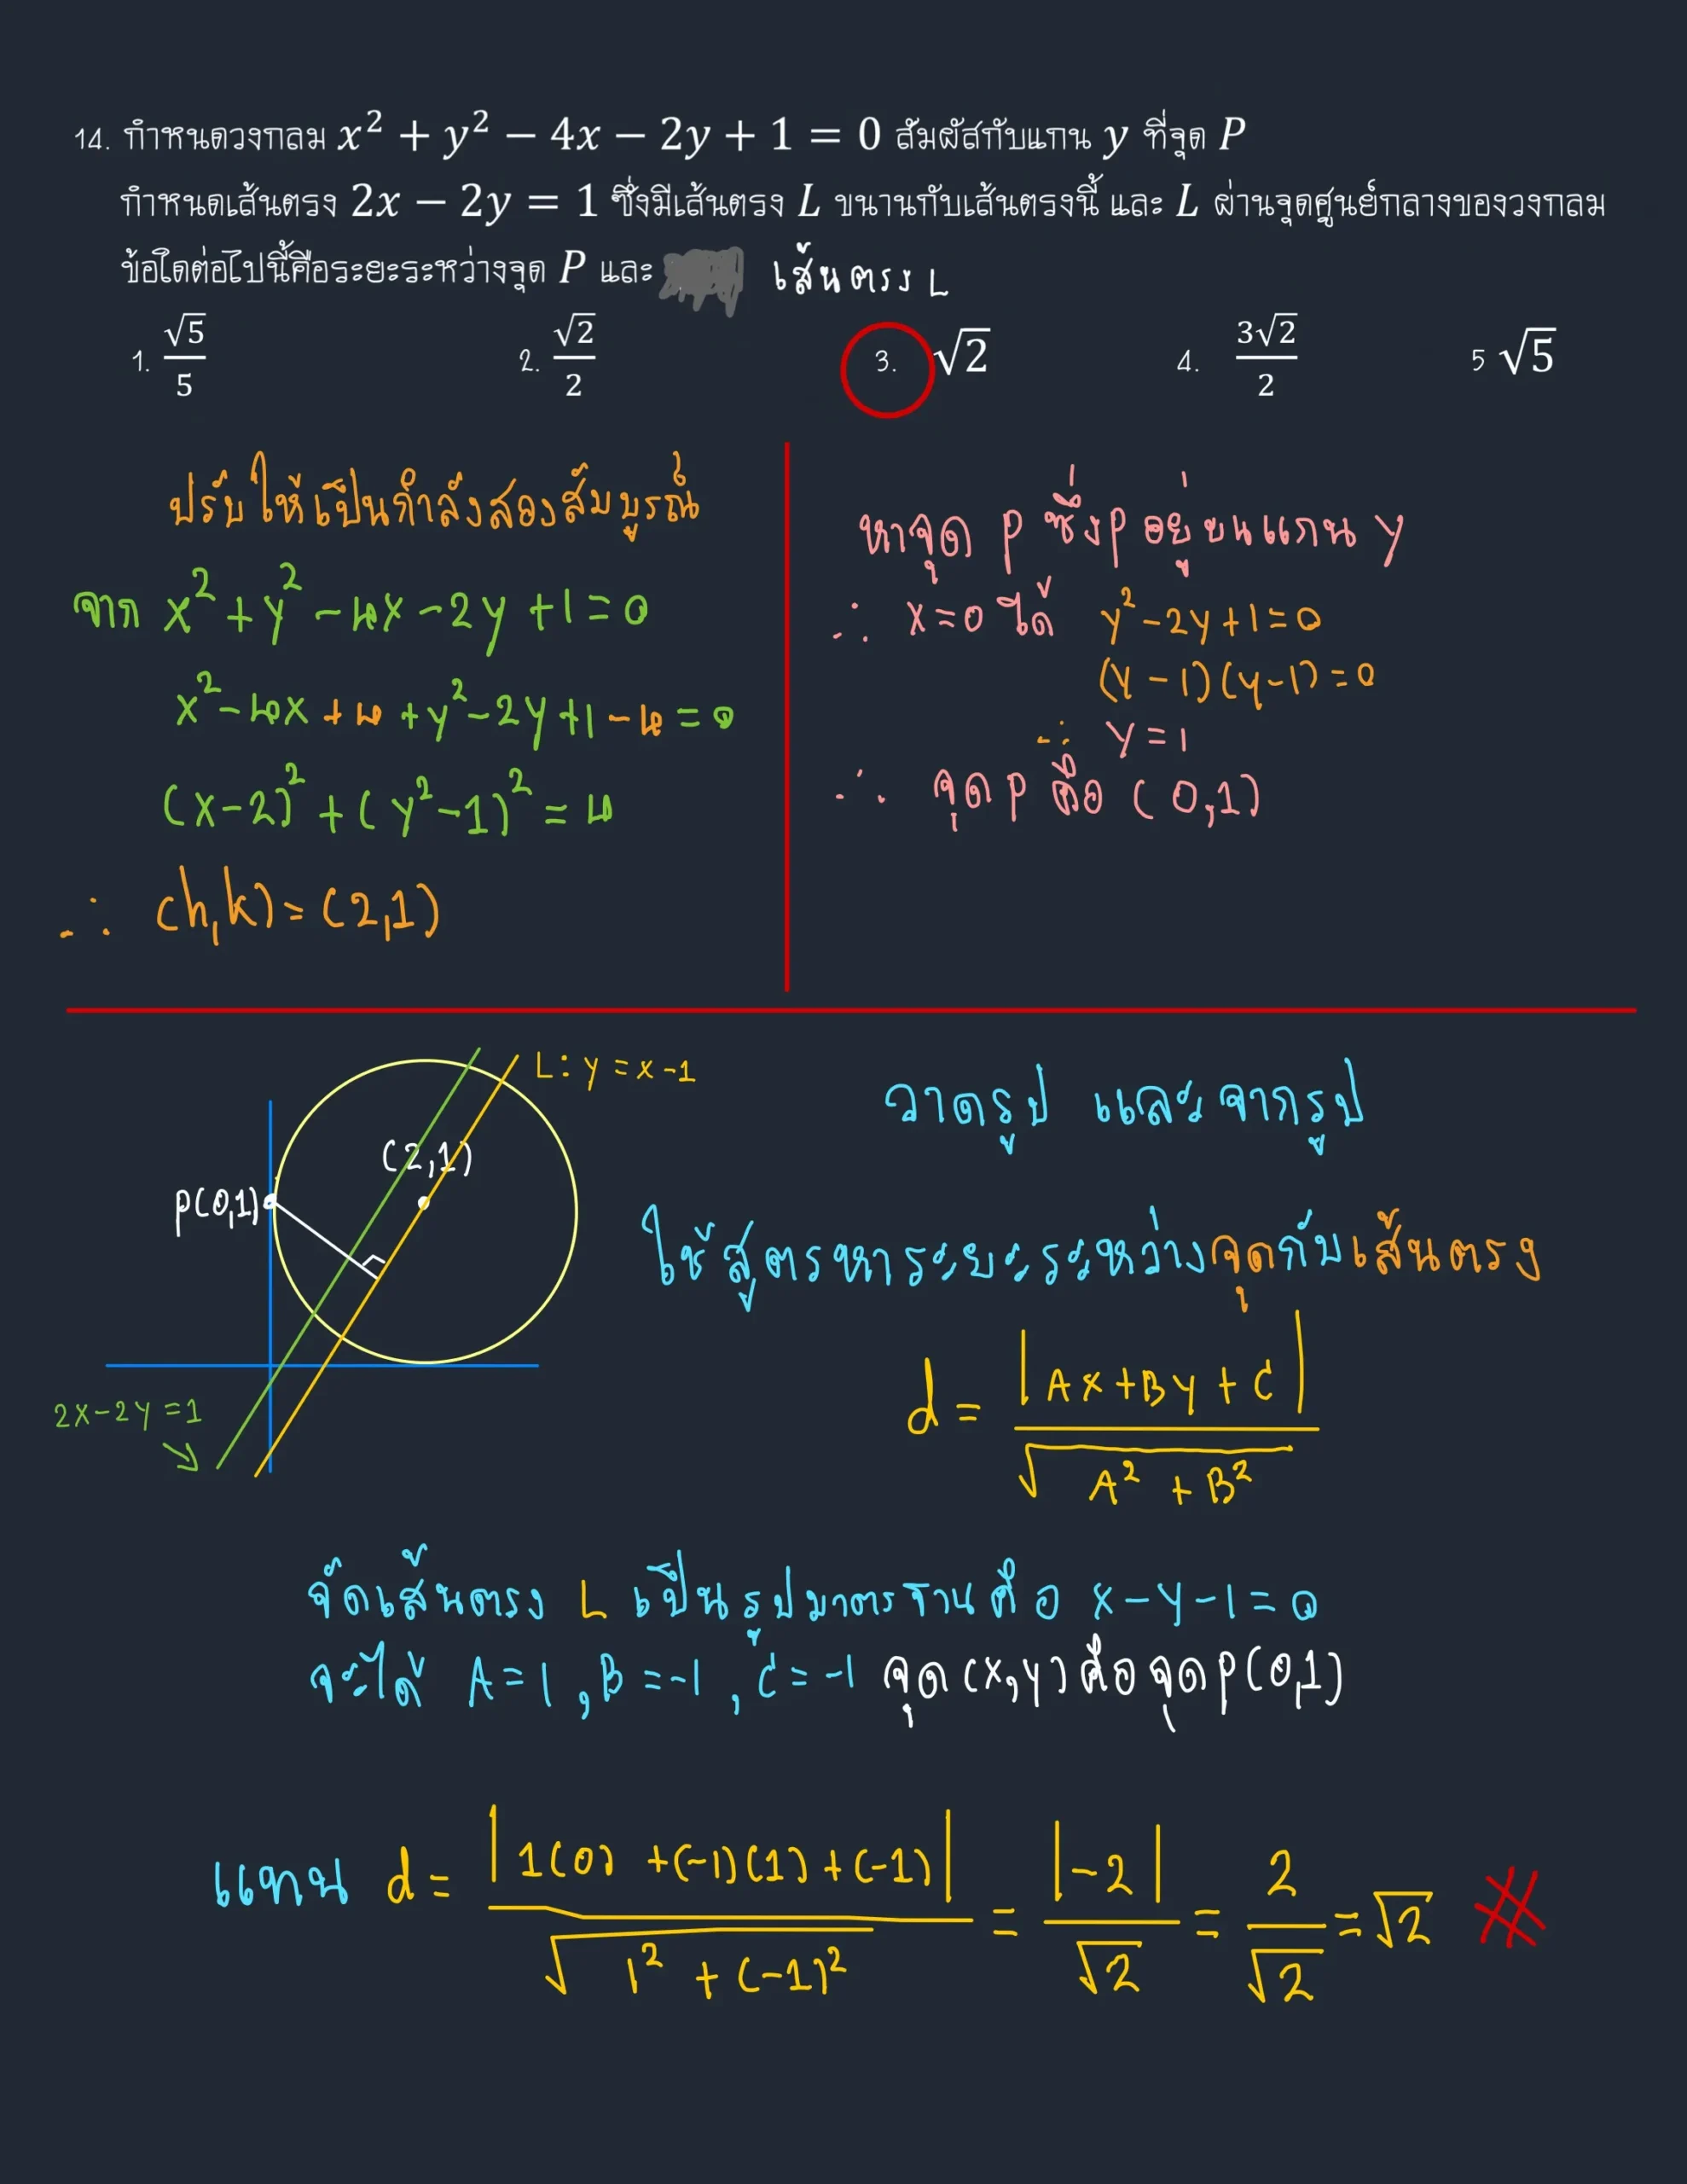 14. กำหนดวงกลม x² + y² − 4x − 2y + 1 = 0 สัมผัสกับแกน y ที่จุด P
กำหนดเส้นตรง 2x − 2y = 1 ซึ่งมีเส้นตรง L ขนานกับเส้นตรงนี้ และ L ผ่านจุดศูนย์กลางของวงกลม
ข้อใดต่อไปนี้คือระยะระหว่างจุด P และ เส้นตรง L
1. √5/5 2. √2/2 3. √2 4. 3√2/2 5 √5
ปรับให้เป็นกำลังสองสัมบูรณ์
จาก x² + y² − 4x − 2y + 1 = 0
x² − 4x + 4 + y² − 2y + 1 − 4 = 0
(x−2)² + (y²−1)² = 4
∴ (h,k) = (2,1)
หาจุด P ซึ่ง P อยู่บนแกน y
∴ x=0 ได้ y²−2y+1=0
(y−1)(y−1)=0
∴ y=1
∴ จุด P คือ (0,1)
L: y = x−1
(2,1)
P(0,1)
2x−2y=1
วาดรูป และจากรูป
ใช้สูตรหาระยะระหว่างจุดกับเส้นตรง
d = |Ax+By+C| / √(A²+B²)
จัดเส้นตรง L เป็นรูปมาตรฐานคือ x−y−1=0
จะได้ A=1, B=−1, C=−1 จุด (x,y) คือจุด P(0,1)
แทน d = |1(0)+(−1)(1)+(−1)| / √(1²+(−1)²) = |−2|/√2 = 2/√2 = √2 #